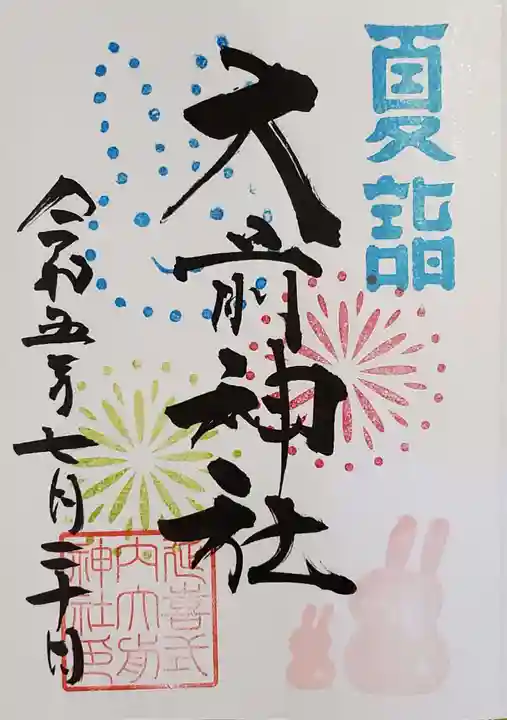 夏詣
大前神社
令和五年七月三十日
延喜式
内大前
神社印